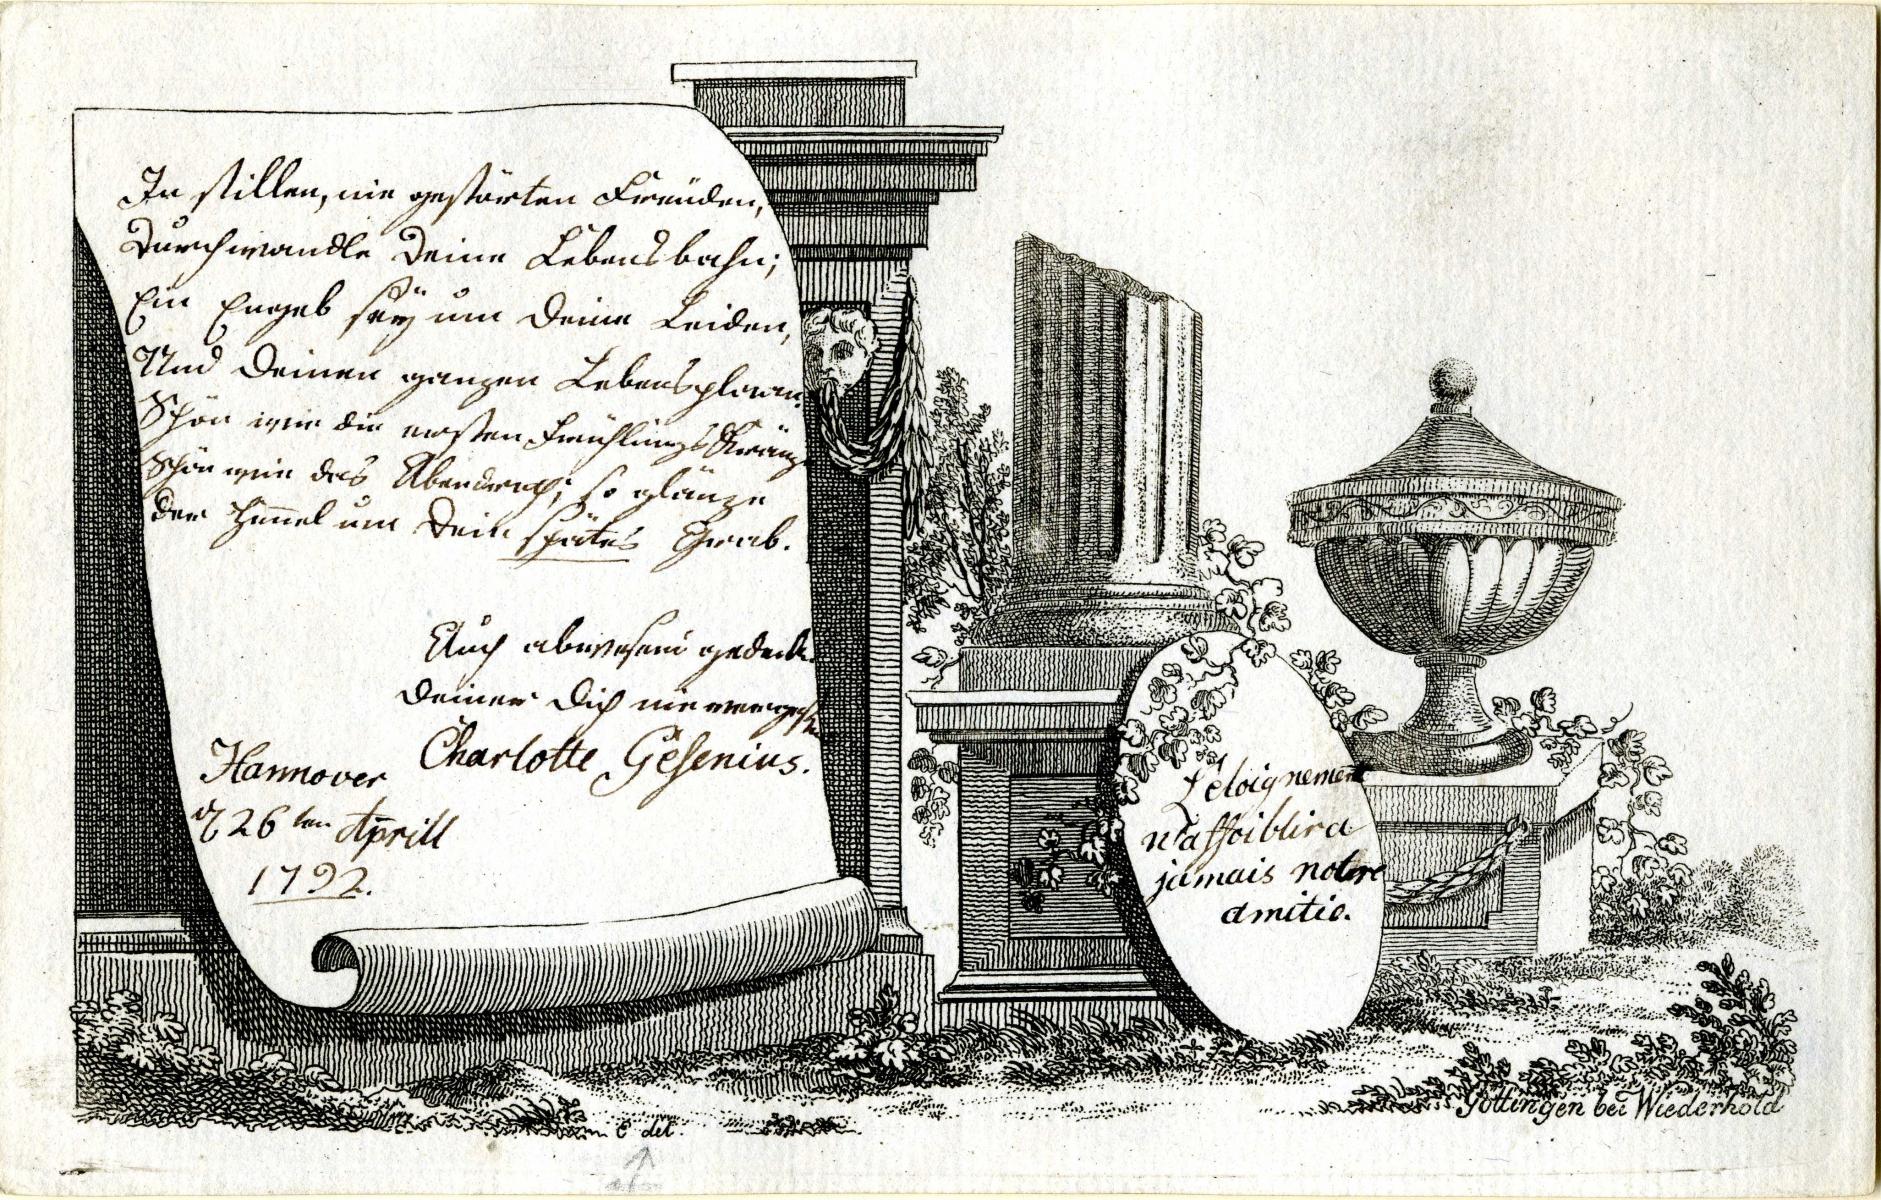 In stillen, nie gestörten Freüden,
Durchwandle Deine Lebensbahn;
Ein Engel seÿ um Deine Leiden,
Und Deinen ganzen Lebensplan.
Schön wie die ersten Frühlings Kränze
Schön wie das Abendroth; so glänze
der Him̄el um Dein spätes Grab.
Auch abwesend gedenke
Deiner Dich nie vergeßende
Charlotte Gesenius.
Hannover
d 26ten Aprill
1792.
L'eloignement
n'affoiblira
jamais notre
amitie.
C del.
Göttingen bei Wiederhold